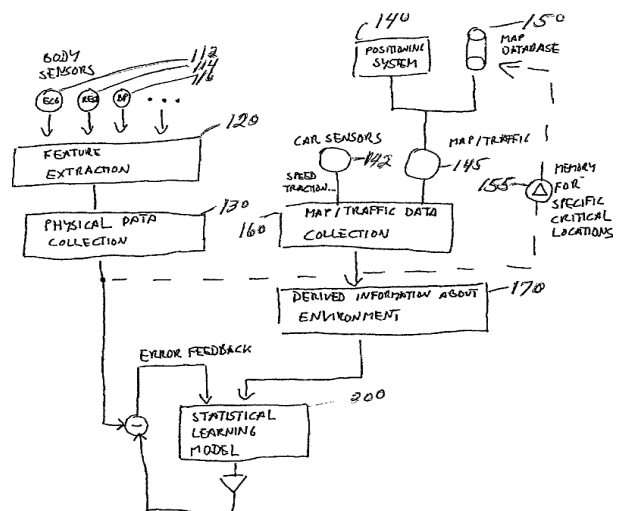 BODY
SENSORS
112
114
116
ECG
RES
BP
...
120
FEATURE
EXTRACTION
130
PHYSICAL DATA
COLLECTION
140
POSITIONING
SYSTEM
150
MAP
DATABASE
CAR SENSORS
142
SPEED
TRACTION...
MAP/TRAFFIC
145
155
MEMORY
FOR
SPECIFIC
CRITICAL
LOCATIONS
160
MAP/TRAFFIC DATA
COLLECTION
170
DERIVED INFORMATION ABOUT
ENVIRONMENT
ERROR FEEDBACK
200
STATISTICAL
LEARNING
MODEL